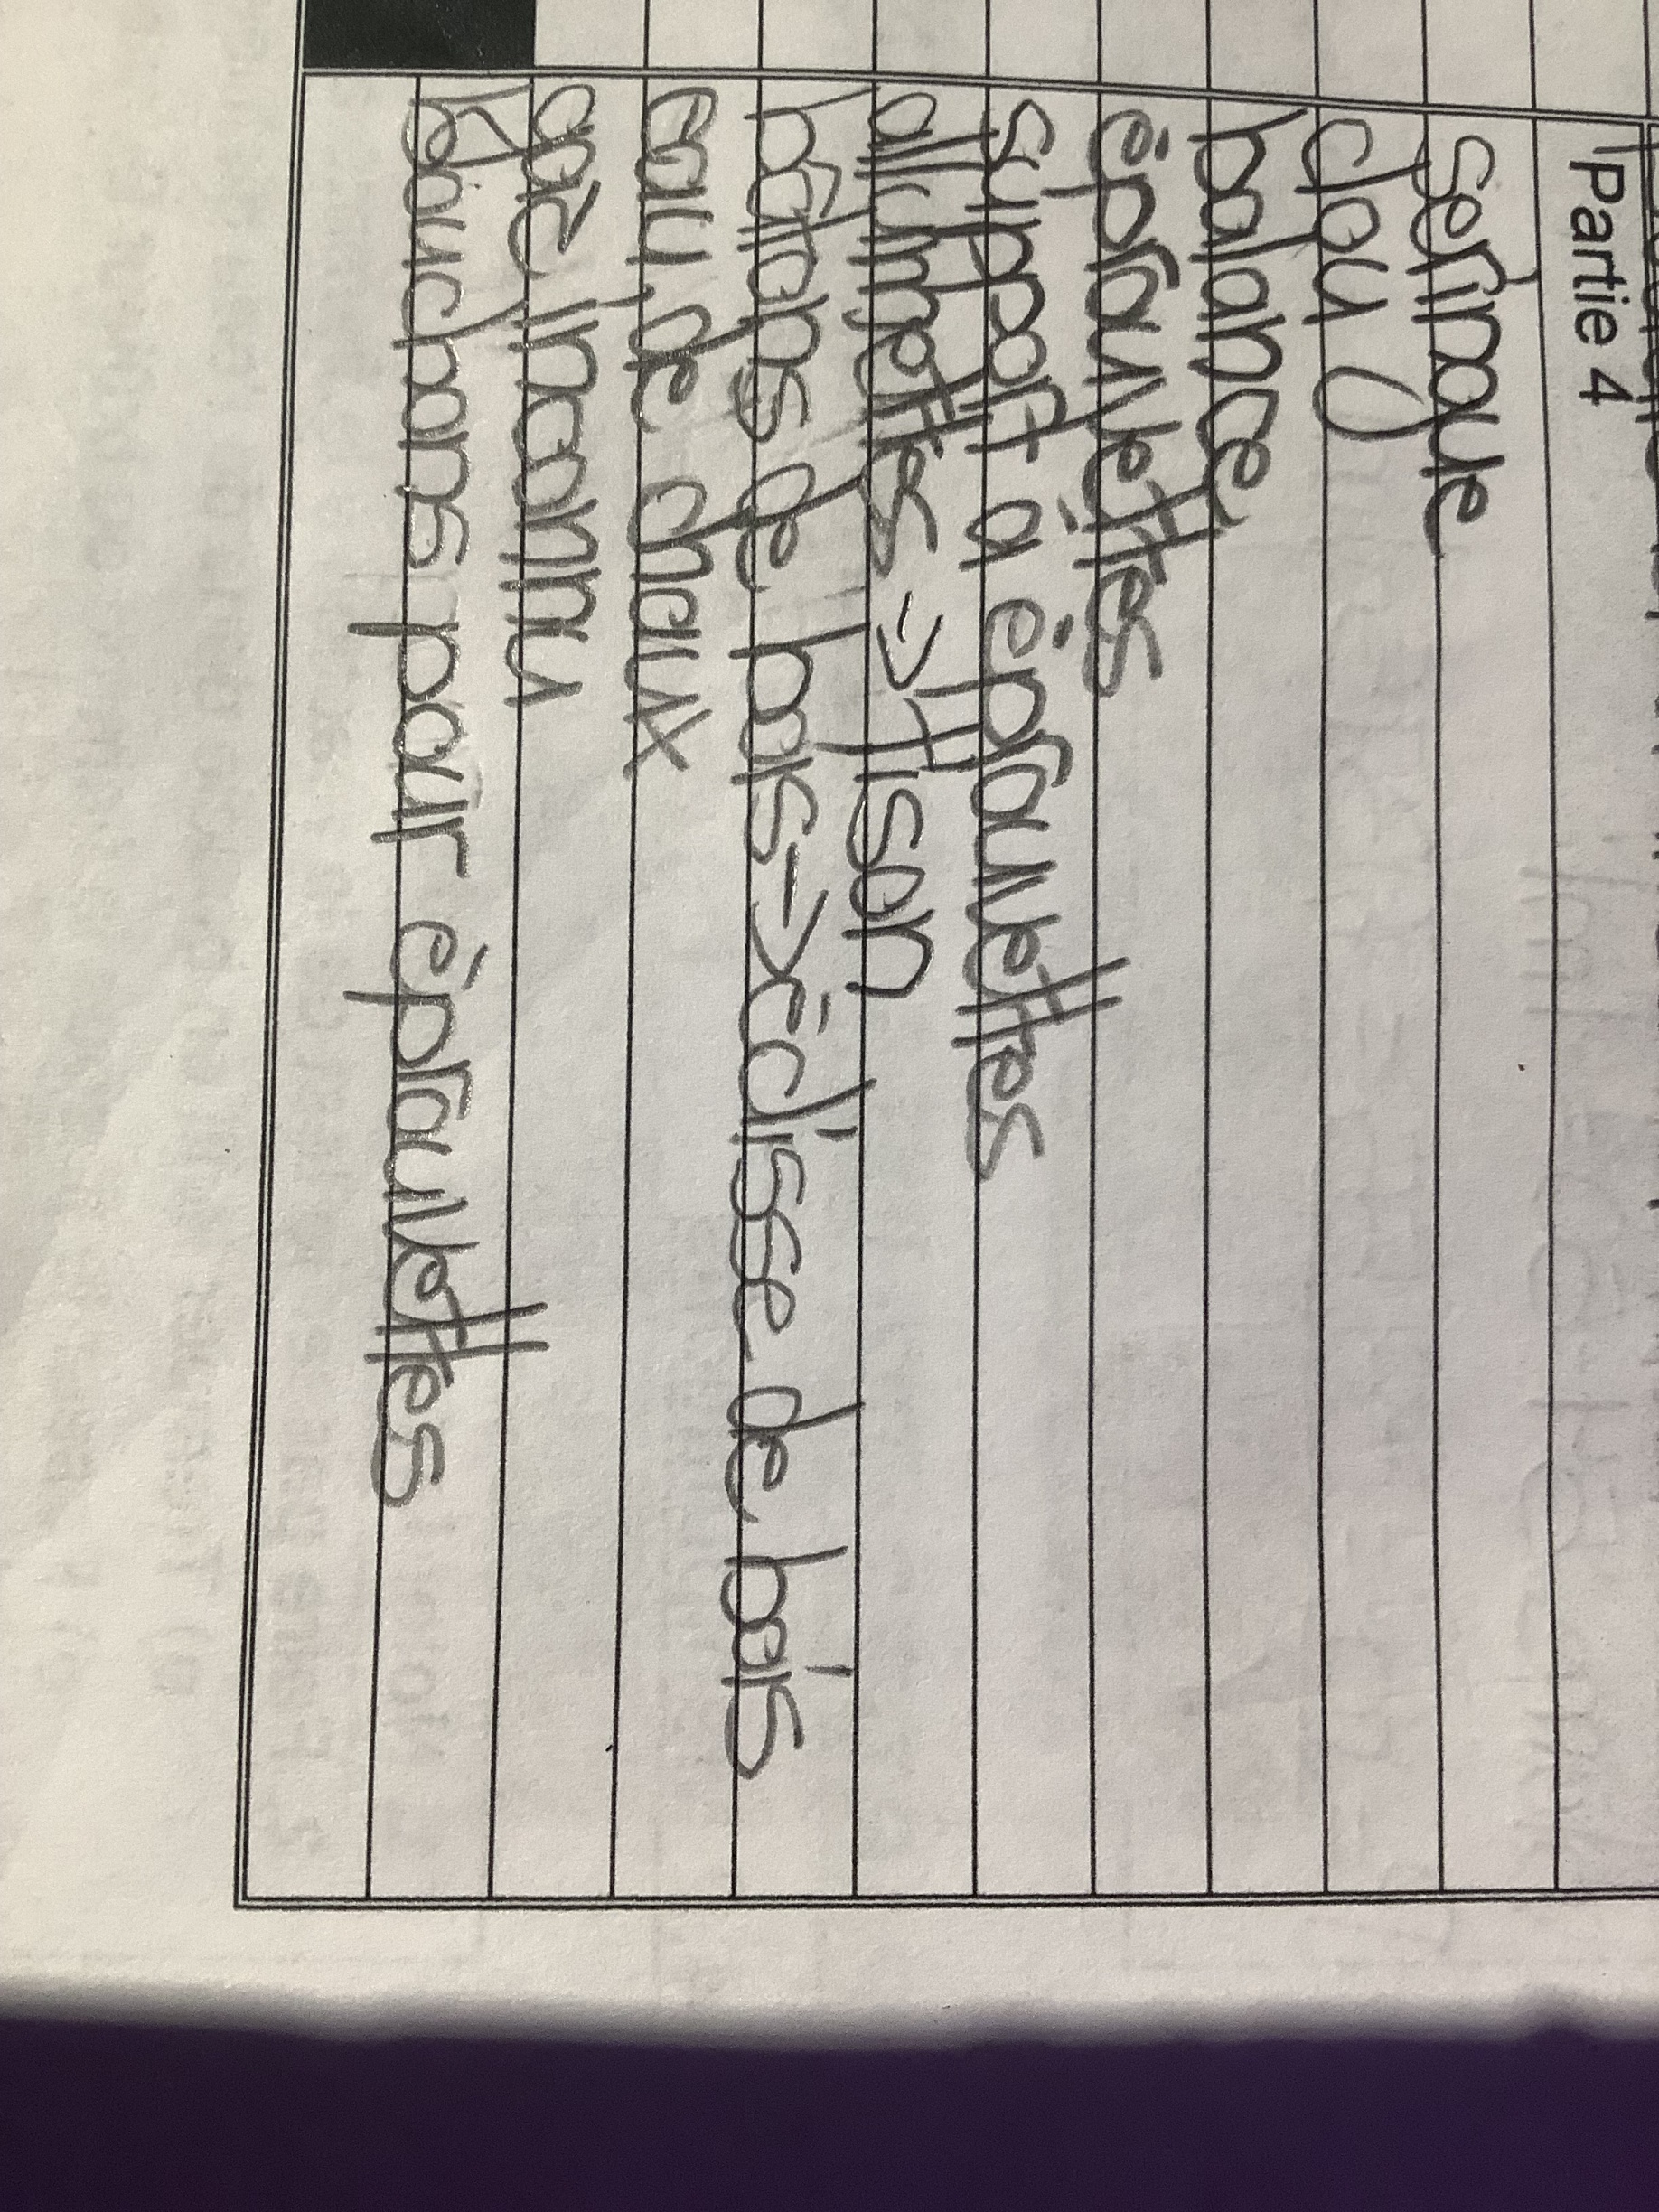 Partie 4
seringue
clou
balance
éprouvettes
support à éprouvettes
allumettes => tison
bâtons de bois => éclisse de bois
eau de chaux
gaz inconnu
bouchons pour éprouvettes